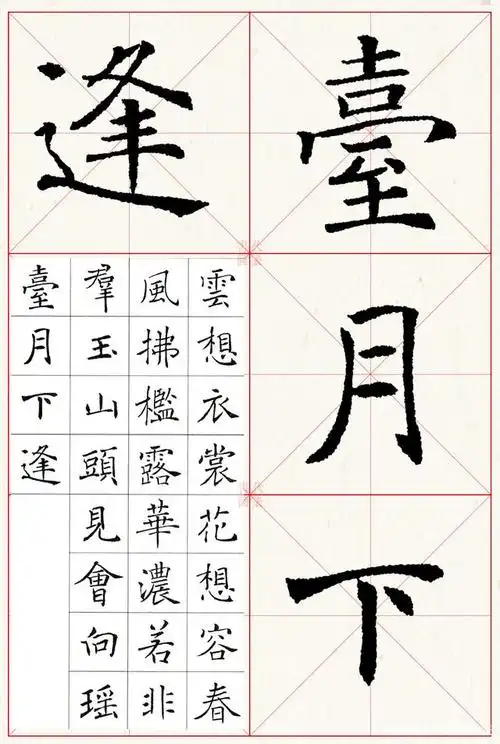 臺月下
逢
雲想衣裳花想容春
風拂檻露華濃若非
羣玉山頭見會向瑶
臺月下逢